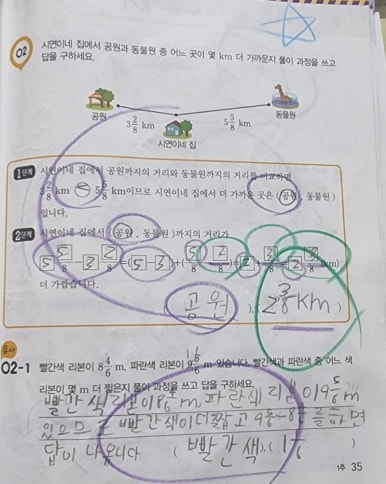 02 시연이네 집에서 공원과 동물원 중 어느 곳이 몇 km 더 가까운지 풀이 과정을 쓰고
답을 구하세요.
공원 3 2/8 km 시연이네 집 5 5/8 km 동물원
1단계 시연이네 집에서 공원까지의 거리와 동물원까지의 거리를 비교하면
3 2/8 km < 5 5/8 km이므로 시연이네 집에서 더 가까운 곳은 (공원, 동물원)
입니다.
2단계 시연이네 집에서 (공원, 동물원)까지의 거리가
5 5/8 - 3 2/8 = (5 - 3) + (5/8 - 2/8) = 2 + 3/8 = 2 3/8 (km)
더 가깝습니다.
(공원), (2 3/8 km)
유사
02-1 빨간색 리본이 8 4/6 m, 파란색 리본이 9 5/6 m 있습니다. 빨간색과 파란색 중 어느 색
리본이 몇 m 더 짧은지 풀이 과정을 쓰고 답을 구하세요.
빨간색 리본이 8 4/6 m 파란색 리본이 9 5/6 m
있으므로 빨간색이 더 짧고 를 하면
답이 나옵니다 (빨간색), (1 1/6)
1주 35